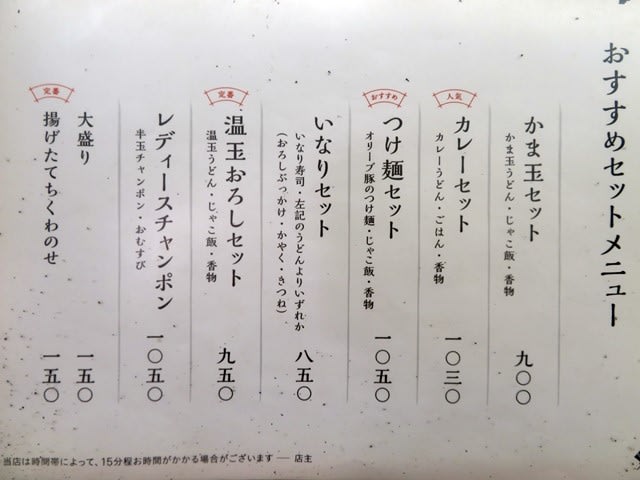 おすすめセットメニュー
かま玉セット
かま玉うどん・じゃこ飯・香物
九〇〇
人気
カレーセット
カレーうどん・ごはん・香物
一〇三〇
おすすめ
つけ麺セット
オリーブ豚のつけ麺・じゃこ飯・香物
一〇五〇
いなりセット
いなり寿司・左記のうどんよりいずれか
(おろしぶっかけ・かやく・きつね)
八五〇
定番
温玉おろしセット
温玉うどん・じゃこ飯・香物
九五〇
レディースチャンポン
半玉チャンポン・おむすび
一〇五〇
大盛り
一五〇
定番
揚げたてちくわのせ
一五〇
当店は時間帯によって、15分程お時間がかかる場合がございます ― 店主